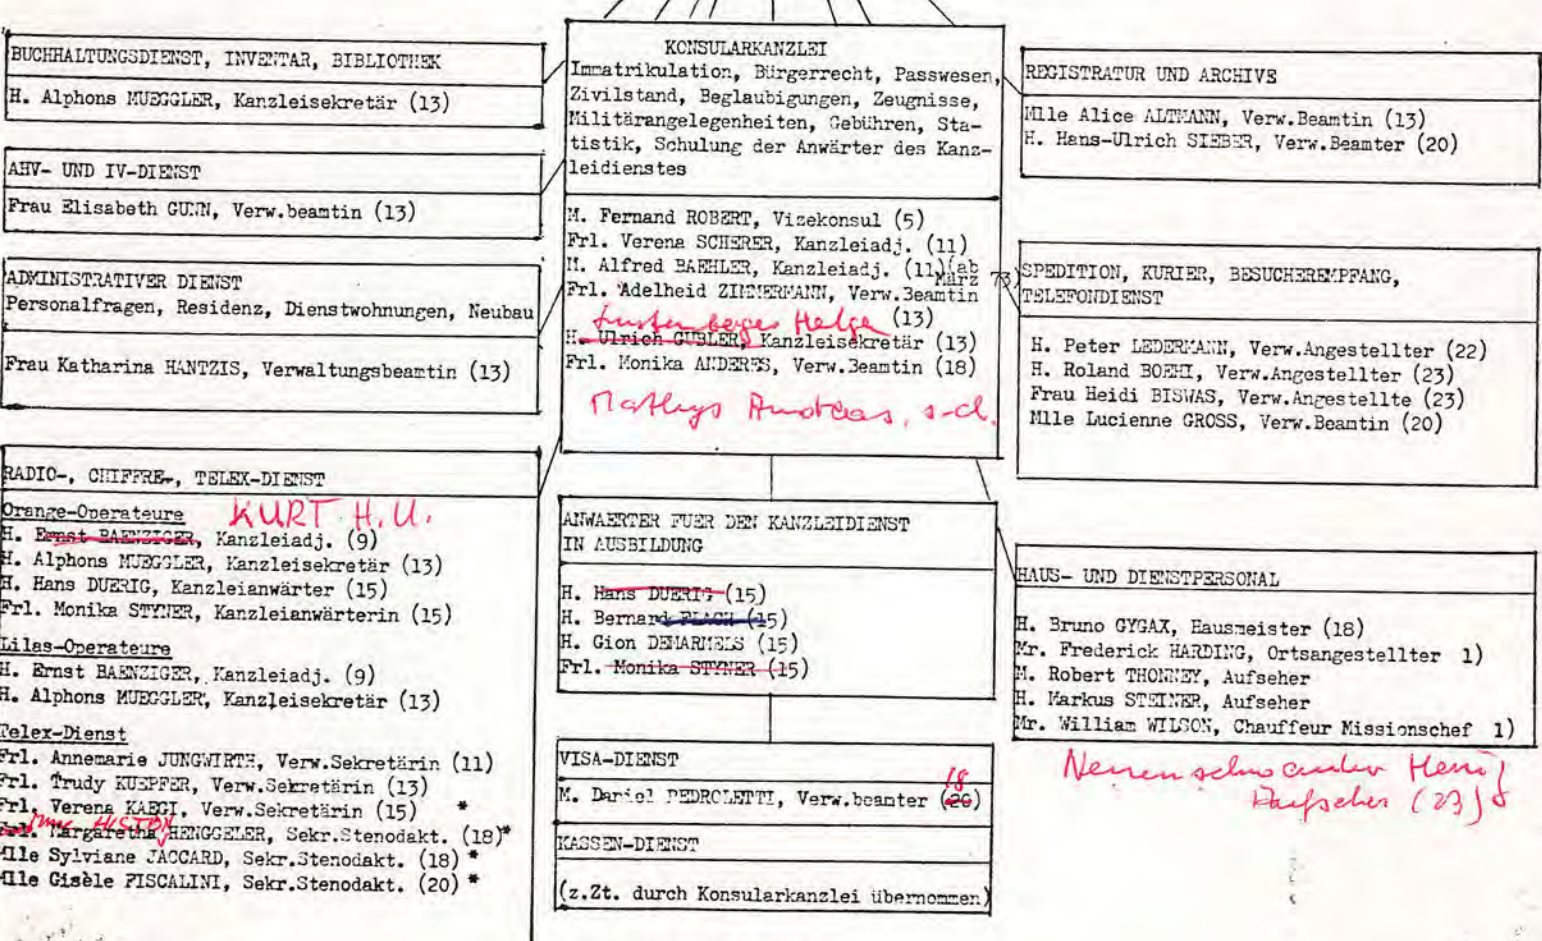 BUCHHALTUNGSDIENST, INVENTAR, BIBLIOTHEK
H. Alphons MUEGGLER, Kanzleisekretär (13)
AHV- UND IV-DIENST
Frau Elisabeth GUNN, Verw.beamtin (13)
ADMINISTRATIVER DIENST
Personalfragen, Residenz, Dienstwohnungen, Neubau
Frau Katharina HANTZIS, Verwaltungsbeamtin (13)
RADIO-, CHIFFRE-, TELEX-DIENST
Orange-Operateure
KURT H.U.
H. Ernst BAENZIGER, Kanzleiadj. (9)
H. Alphons MUEGGLER, Kanzleisekretär (13)
H. Hans DUERIG, Kanzleianwärter (15)
Frl. Monika STYNER, Kanzleianwärterin (15)
Lilas-Operateure
H. Ernst BAENZIGER, Kanzleiadj. (9)
H. Alphons MUEGGLER, Kanzleisekretär (13)
Telex-Dienst
Frl. Annemarie JUNGWIRTH, Verw.Sekretärin (11)
Frl. Trudy KUEPFER, Verw.Sekretärin (13)
Frl. Verena KAEGI, Verw.Sekretärin (15) *
HISTON
Frl. Margaretha HENGGELER, Sekr.Stenodakt. (18)*
Mlle Sylviane JACCARD, Sekr.Stenodakt. (18) *
Mlle Gisèle PISCALINI, Sekr.Stenodakt. (20) *
KONSULARKANZLEI
Immatrikulation, Bürgerrecht, Passwesen,
Zivilstand, Beglaubigungen, Zeugnisse,
Militärangelegenheiten, Gebühren, Sta-
tistik, Schulung der Anwärter des Kanz-
leidienstes
M. Fernand ROBERT, Vizekonsul (5)
Frl. Verena SCHERER, Kanzleiadj. (11)
H. Alfred BAEHLER, Kanzleiadj. (11)(ab
März 73)
Frl. Adelheid ZIMMERMANN, Verw.Beamtin
(13)
Helga
H. Ulrich GUBLER, Kanzleisekretär (13)
Frl. Monika ANDERES, Verw.Beamtin (18)
Mathys Andreas, s-cl.
ANWAERTER FUER DEN KANZLEIDIENST
IN AUSBILDUNG
H. Hans DUERIG (15)
H. Bernard FLACH (15)
H. Gion DEMARMELS (15)
Frl. Monika STYNER (15)
VISA-DIENST
18
M. Daniel PEDROLETTI, Verw.beamter (20)
KASSEN-DIENST
(z.Zt. durch Konsularkanzlei übernommen)
REGISTRATUR UND ARCHIVE
Mlle Alice ALTMANN, Verw.Beamtin (13)
H. Hans-Ulrich SIEBER, Verw.Beamter (20)
SPEDITION, KURIER, BESUCHEREMPFANG,
TELEFONDIENST
H. Peter LEDERMANN, Verw.Angestellter (22)
H. Roland BOEHI, Verw.Angestellter (23)
Frau Heidi BISWAS, Verw.Angestellte (23)
Mlle Lucienne GROSS, Verw.Beamtin (20)
HAUS- UND DIENSTPERSONAL
H. Bruno GYGAX, Hausmeister (18)
Mr. Frederick HARDING, Ortsangestellter 1)
M. Robert THONNEY, Aufseher
H. Markus STEINER, Aufseher
Mr. William WILSON, Chauffeur Missionschef 1)
Nenenschwander Henri
Aufseher (23)